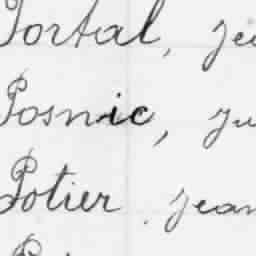 Portal, je
Posnic, ju
Potier, jean